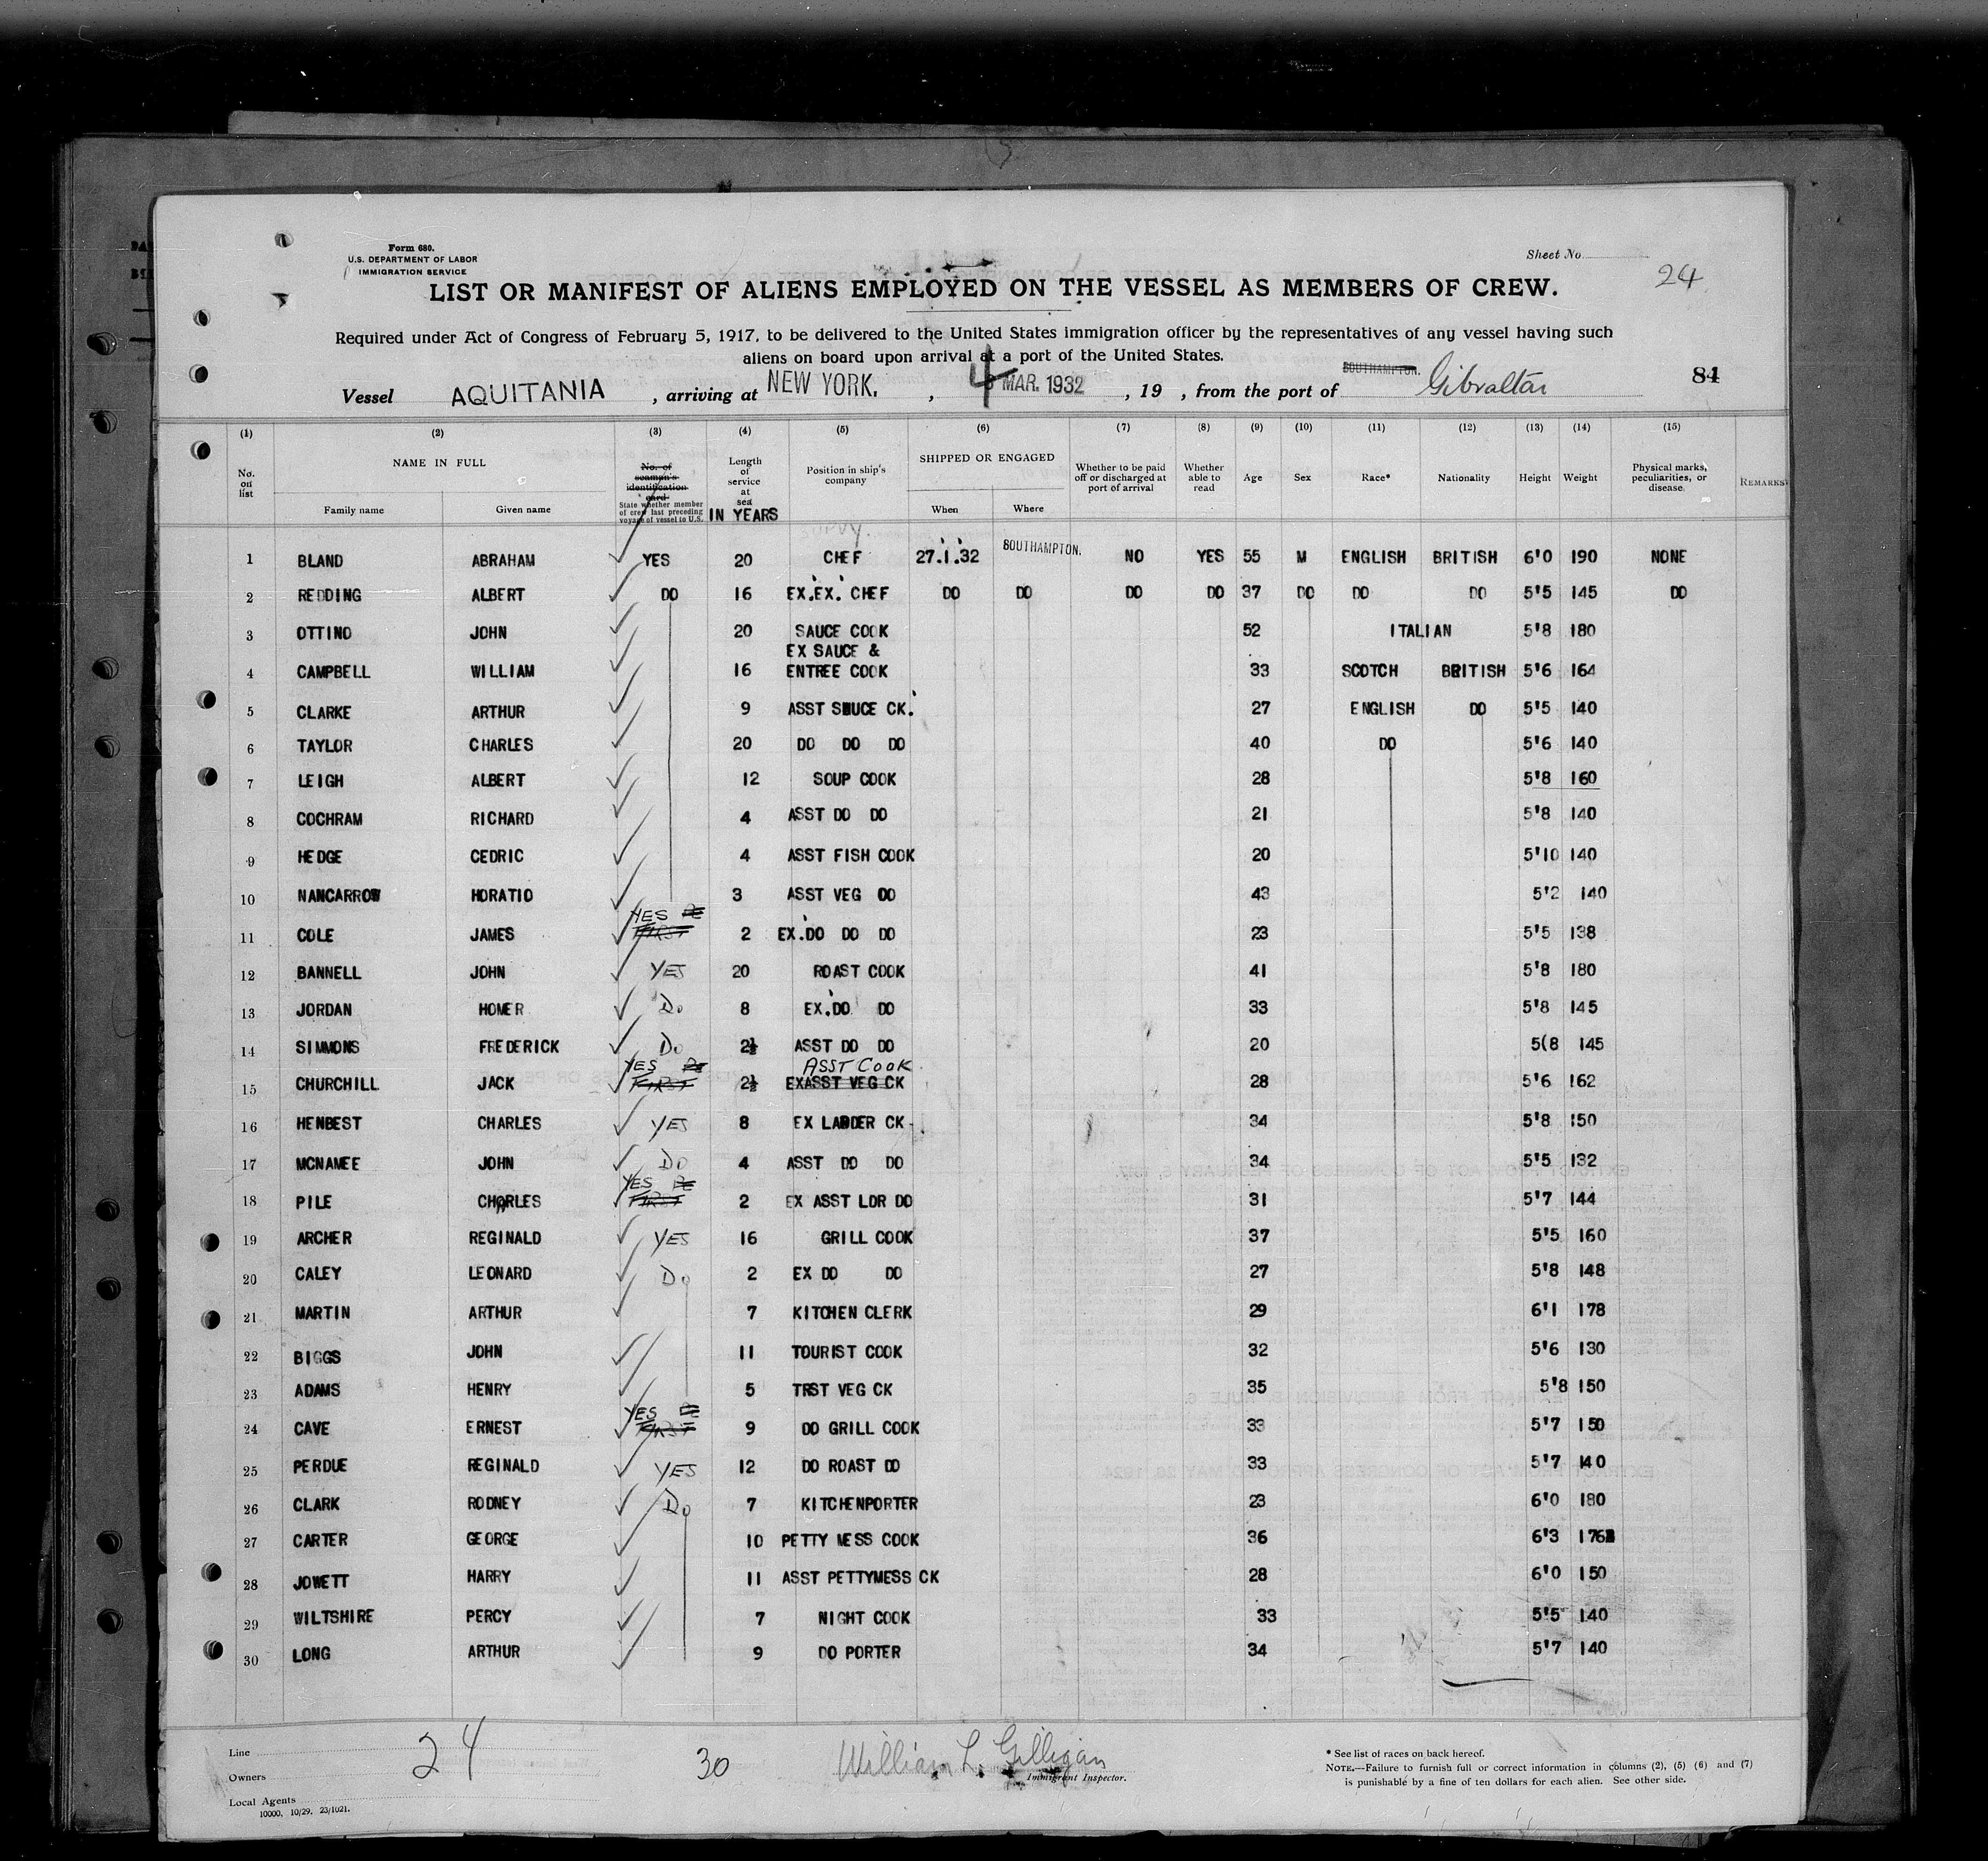 Form 680.
U.S. DEPARTMENT OF LABOR
IMMIGRATION SERVICE
Sheet No.
24
LIST OR MANIFEST OF ALIENS EMPLOYED ON THE VESSEL AS MEMBERS OF CREW.
Required under Act of Congress of February 5, 1917, to be delivered to the United States immigration officer by the representatives of any vessel having such
aliens on board upon arrival at a port of the United States.
Vessel AQUITANIA , arriving at NEW YORK. , 4 MAR. 1932 , 19 , from the port of SOUTHAMPTON. Gibraltar 84
(1) (2) (3) (4) (5) (6) (7) (8) (9) (10) (11) (12) (13) (14) (15)
No. on list NAME IN FULL Family name Given name No. of seaman's identification card State whether member of crew last preceding voyage of vessel to U.S. Length of service at sea IN YEARS Position in ship's company SHIPPED OR ENGAGED When Where Whether to be paid off or discharged at port of arrival Whether able to read Age Sex Race* Nationality Height Weight Physical marks, peculiarities, or disease REMARKS
1 BLAND ABRAHAM YES 20 CHEF 27.1.32 SOUTHAMPTON. NO YES 55 M ENGLISH BRITISH 6'0 190 NONE
2 REDDING ALBERT DO 16 EX.EX. CHEF DO DO DO DO 37 DO DO DO 5'5 145 DO
3 OTTINO JOHN 20 SAUCE COOK 52 ITALIAN 5'8 180
4 CAMPBELL WILLIAM 16 EX SAUCE & ENTREE COOK 33 SCOTCH BRITISH 5'6 164
5 CLARKE ARTHUR 9 ASST SAUCE CK. 27 ENGLISH DO 5'5 140
6 TAYLOR CHARLES 20 DO DO DO 40 DO 5'6 140
7 LEIGH ALBERT 12 SOUP COOK 28 5'8 160
8 COCHRAM RICHARD 4 ASST DO DO 21 5'8 140
9 HEDGE CEDRIC 4 ASST FISH COOK 20 5'10 140
10 NANCARROW HORATIO 3 ASST VEG DO 43 5'2 140
11 COLE JAMES YES FIRST 2 EX.DO DO DO 23 5'5 138
12 BANNELL JOHN YES 20 ROAST COOK 41 5'8 180
13 JORDAN HOMER Do 8 EX.DO DO 33 5'8 145
14 SIMMONS FREDERICK Do 2½ ASST DO DO 20 5(8 145
15 CHURCHILL JACK YES FIRST 2½ ASST COOK EXASST VEG CK 28 5'6 162
16 HENBEST CHARLES YES 8 EX LARDER CK 34 5'8 150
17 MCNAMEE JOHN DO 4 ASST DO DO 34 5'5 132
18 PILE CHARLES YES FIRST 2 EX ASST LDR DO 31 5'7 144
19 ARCHER REGINALD YES 16 GRILL COOK 37 5'5 160
20 CALEY LEONARD Do 2 EX DO DO 27 5'8 148
21 MARTIN ARTHUR 7 KITCHEN CLERK 29 6'1 178
22 BIGGS JOHN 11 TOURIST COOK 32 5'6 130
23 ADAMS HENRY 5 TRST VEG CK 35 5'8 150
24 CAVE ERNEST YES FIRST 9 DO GRILL COOK 33 5'7 150
25 PERDUE REGINALD YES 12 DO ROAST DO 33 5'7 140
26 CLARK RODNEY Do 7 KITCHENPORTER 23 6'0 180
27 CARTER GEORGE 10 PETTY MESS COOK 36 6'3 176
28 JOWETT HARRY 11 ASST PETTYMESS CK 28 6'0 150
29 WILTSHIRE PERCY 7 NIGHT COOK 33 5'5 140
30 LONG ARTHUR 9 DO PORTER 34 5'7 140
Line
Owners
Local Agents
10000, 10/29, 23/1021.
24
30
William L. Gilligan
Immigrant Inspector.
* See list of races on back hereof.
NOTE.—Failure to furnish full or correct information in columns (2), (5) (6) and (7)
is punishable by a fine of ten dollars for each alien. See other side.